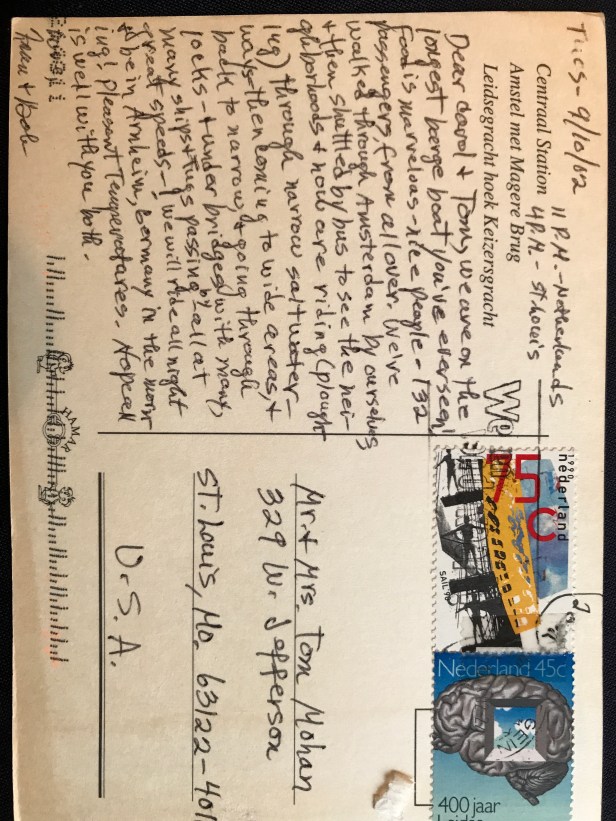 Tues- 9/10/02
11 P.M.- Netherlands
4 P.M.- St. Louis
Centraal Station
Amstel met Magere Brug
Leidsegracht hoek Keizersgracht
Dear Carol & Tom, we are on the
longest barge boat you've ever seen!
food is marvelous - nice people - 132
passengers from all over. We've
walked through Amsterdam by ourselves
& then shuttled by bus to see the nei-
ghborhoods & now are riding (plough
ing) through narrow saltwater-
ways then coming to wide areas, &
back to narrow, & going through
locks - & under bridges, with many
many ships & tugs passing by - all at
great speeds - we will ride all night
& be in Arnheim, Germany in the morn
ing! Pleasant Temperatures. Hope all
is well with you both -
& Bob
We
1990
nederland
75c
SAIL 90
Nederland 45c
400 jaar
Mr. & Mrs. Tom Mohan
329 W. Jefferson
St. Louis, Mo. 63122-401
U.S.A.